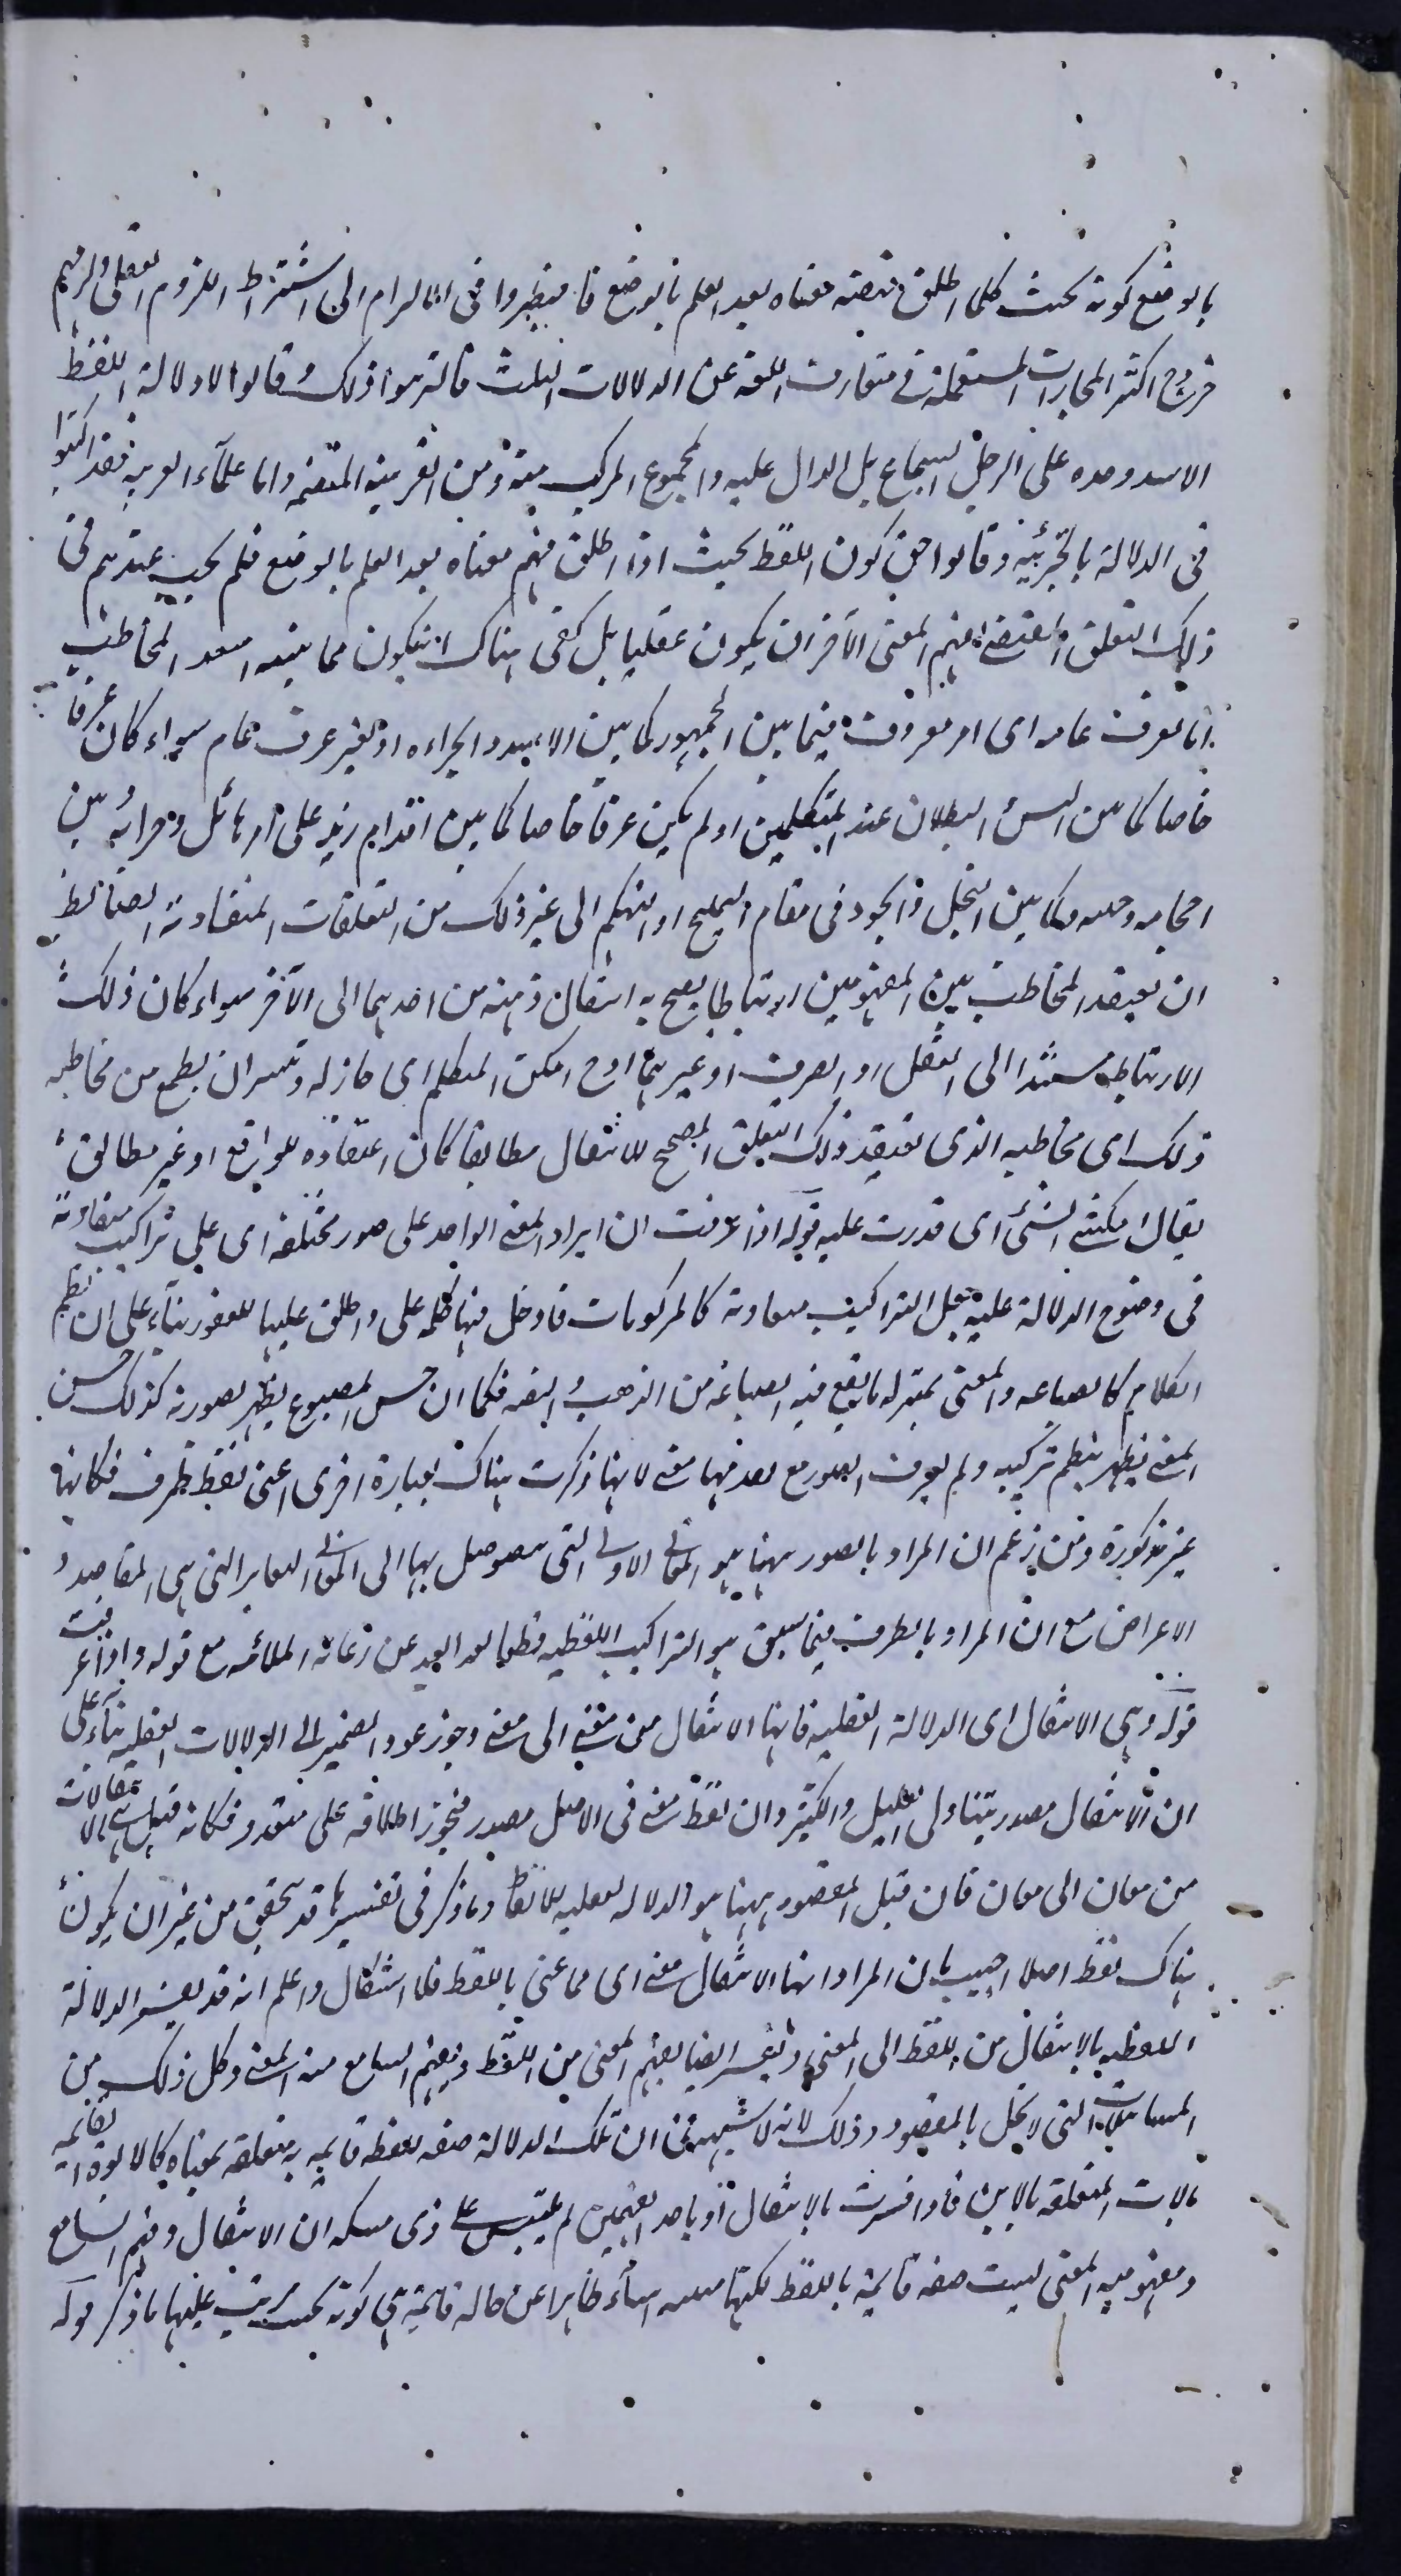 بالوضع كونه بحيث كلما اطلق فهم معناه بعد العلم بالوضع فاضطروا فى الالتزام الى اشتراط اللزوم العقلى ولزمهم
خروج اكثر المجازات المستعملة فى متعارف اللغة عن الدلالات الثلث فالتزموا ذلك وقالوا لا دلالة للفظ
الاسد وحده على الرجل الشجاع بل الدال عليه المجموع المركب منه ومن القرينة المعينة واما علماء العربية فقد اكتفوا
فى الدلالة بالجزئية وقالوا هى كون اللفظ بحيث اذا اطلق فهم معناه بعد العلم بالوضع فلم يجب عندهم فى
ذلك التعلق المقتضى لفهم المعنى الآخر ان يكون عقليا بل كفى هناك ان يكون مما يثبته اعتقاد المخاطب
اما لعرف عام اى امر معروف فيما بين الجمهور كما بين الاسد والجراءة او لغير عرف عام سواء كان عرفا
خاصا كما بين التسلسل والبطلان عند المتكلمين او لم يكن عرفا خاصا كما بين اقدام زيد على امر هائل وجراته بين
وكما بين البخل والجود فى مقام التمليح او التهكم الى غير ذلك من التعلقات المتفاوتة الضابط
ان يعتقد المخاطب بين المفهومين ارتباطا يصح به انتقال ذهنه من احدهما الى الآخر سواء كان ذلك
الارتباط مستندا الى العقل او العرف او غيرهما وح امكن المتكلم اى جاز له وتيسر ان يطمع من مخاطبه
ذلك اى مخاطبه الذى يعتقد ذلك التعلق المصحح للانتقال مطابقا كان اعتقاده للواقع او غير مطابق
يقال امكننى الشئ اى قدرت عليه قوله اذا عرفت ان ايراد المعنى الواحد على صور مختلفة اى على تراكيب متفاوتة
فى وضوح الدلالة عليه جعل التراكيب كالمركوبات فادخل فيها كلمة على واطلق عليها الصور بناء على ان نظم
الكلام كالصياغة والمعنى بمنزلة ما يقع فيه الصياغة من الذهب والفضة فكما ان حسن المصبوغ يظهر بصورته كذلك حسن
المعنى يظهر بنظم تركيبه ولم يعرف الصور مع لانها ذكرت هناك بعبارة اخرى اعنى لفظ طرف فكانها
غير مذكورة ومن زعم ان المراد بالصور ههنا هو المعانى الاول التى يتوصل بها الى المعانى التى هى المقاصد و
الاعراض مع ان المراد بالطرف فيما سبق هو التراكيب اللفظية قطعا فقد ابعد عن رعاية الملائمة مع قوله واذا عرفت
قوله وهى الانتقال اى الدلالة العقلية فانها الانتقال من معنى الى معنى وجوز عود الضمير الى الدلالات العقلية بناء على
ان الانتقال مصدر يتناول القليل والكثير وان لفظ معنى فى الاصل مصدر فيجوز اطلاقه على متعدد فكانه قيل هى الانتقالات
من معان الى معان فان قيل المقصود ههنا هو الدلالة العقلية للالفاظ وما ذكر فى تفسيرها قد يتحقق من غير ان يكون
هناك لفظ اصلا اجيب بان المراد انها الانتقال من معنى اى مما عنى باللفظ فلا اشكال واعلم انه قد يفسر الدلالة
اللفظية بالانتقال من اللفظ الى المعنى وتفسر ايضا بفهم المعنى من اللفظ وبفهم السامع منه المعنى وكل ذلك من
المسامحات التى لا تخل بالمقصود وذلك لانه لا شبهة فى ان تلك الدلالة صفة للفظ قائمة به متعلقة بمعناه كالابوة القائمة
بالاب المتعلقة بالابن فاذا فسرت بالانتقال او باحد الفهمين لم يلتبس على ذى مسكة ان الانتقال وفهم السامع
ومفهومية المعنى ليست صفة قائمة باللفظ لكنها انباء ظاهرا عن حالة قائمة هى كونه بحيث يترتب عليها ما ذكر قوله